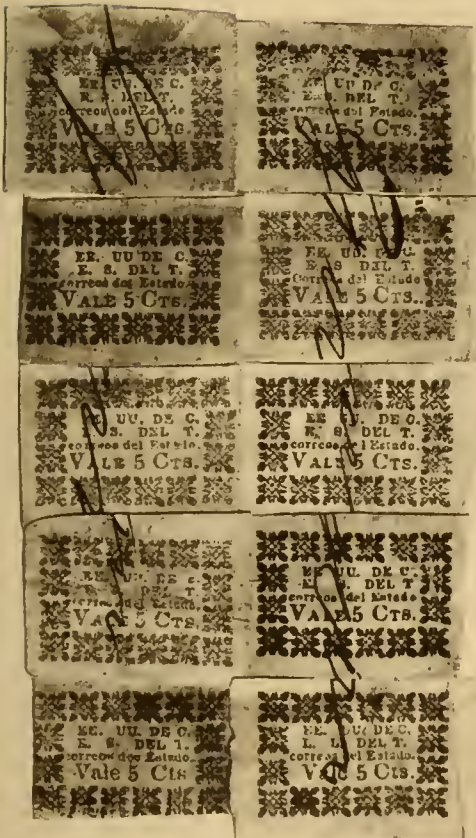 EE. UU. DE C.
E. S. DEL T.
correos del Estado
VALE 5 CTS.
EE. UU DE C.
E. S. DEL T.
correos del Estado.
VALE 5 CTS.
EE. UU DE C.
E. S. DEL T.
correos del Estado.
VALE 5 CTS.
EE. UU. DE C.
E. S. DEL T.
Correos del Estado
VALE 5 CTS.
UU. DE C.
S. DEL T.
correos del Estado.
VALE 5 CTS.
EE. U. DE C.
E. S. DEL T.
correos del Estado.
VALE 5 CTS.
EE. UU. DE C.
DEL T.
correos del Estado.
VALE 5 CTS.
EE UU. DE C.
E. S. DEL T
correos del Estado
VALE 5 CTS.
EE. UU. DE C.
E. S. DEL T.
correos del Estado.
Vale 5 Cts
EE. UU. DE C.
DEL T.
correos del Estado.
Vale 5 Cts.